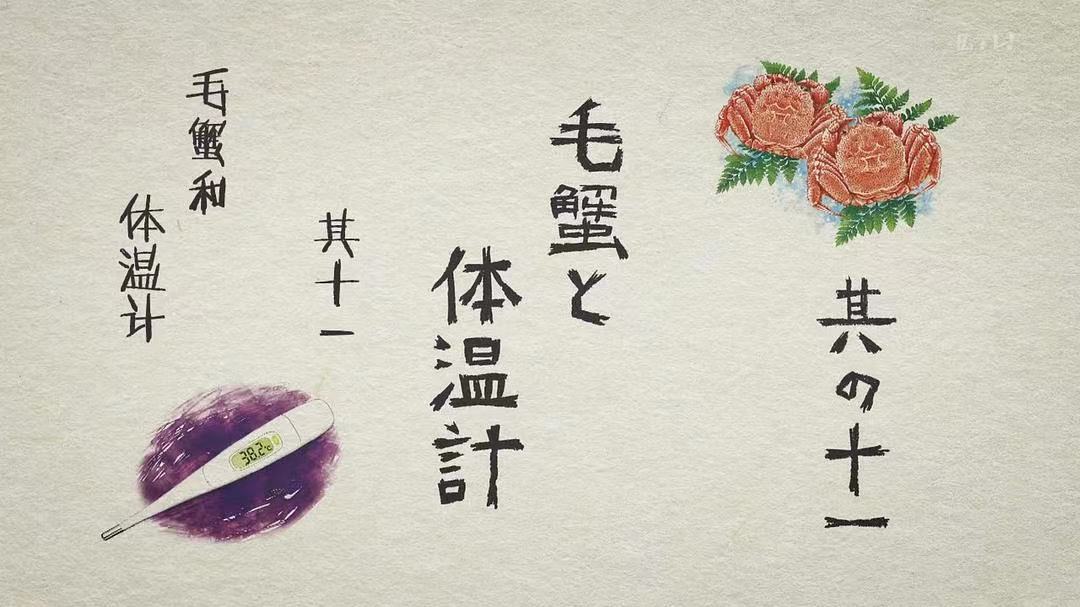 其の十一
毛蟹と
体温計
其十一
毛蟹和
体温计
38.2℃